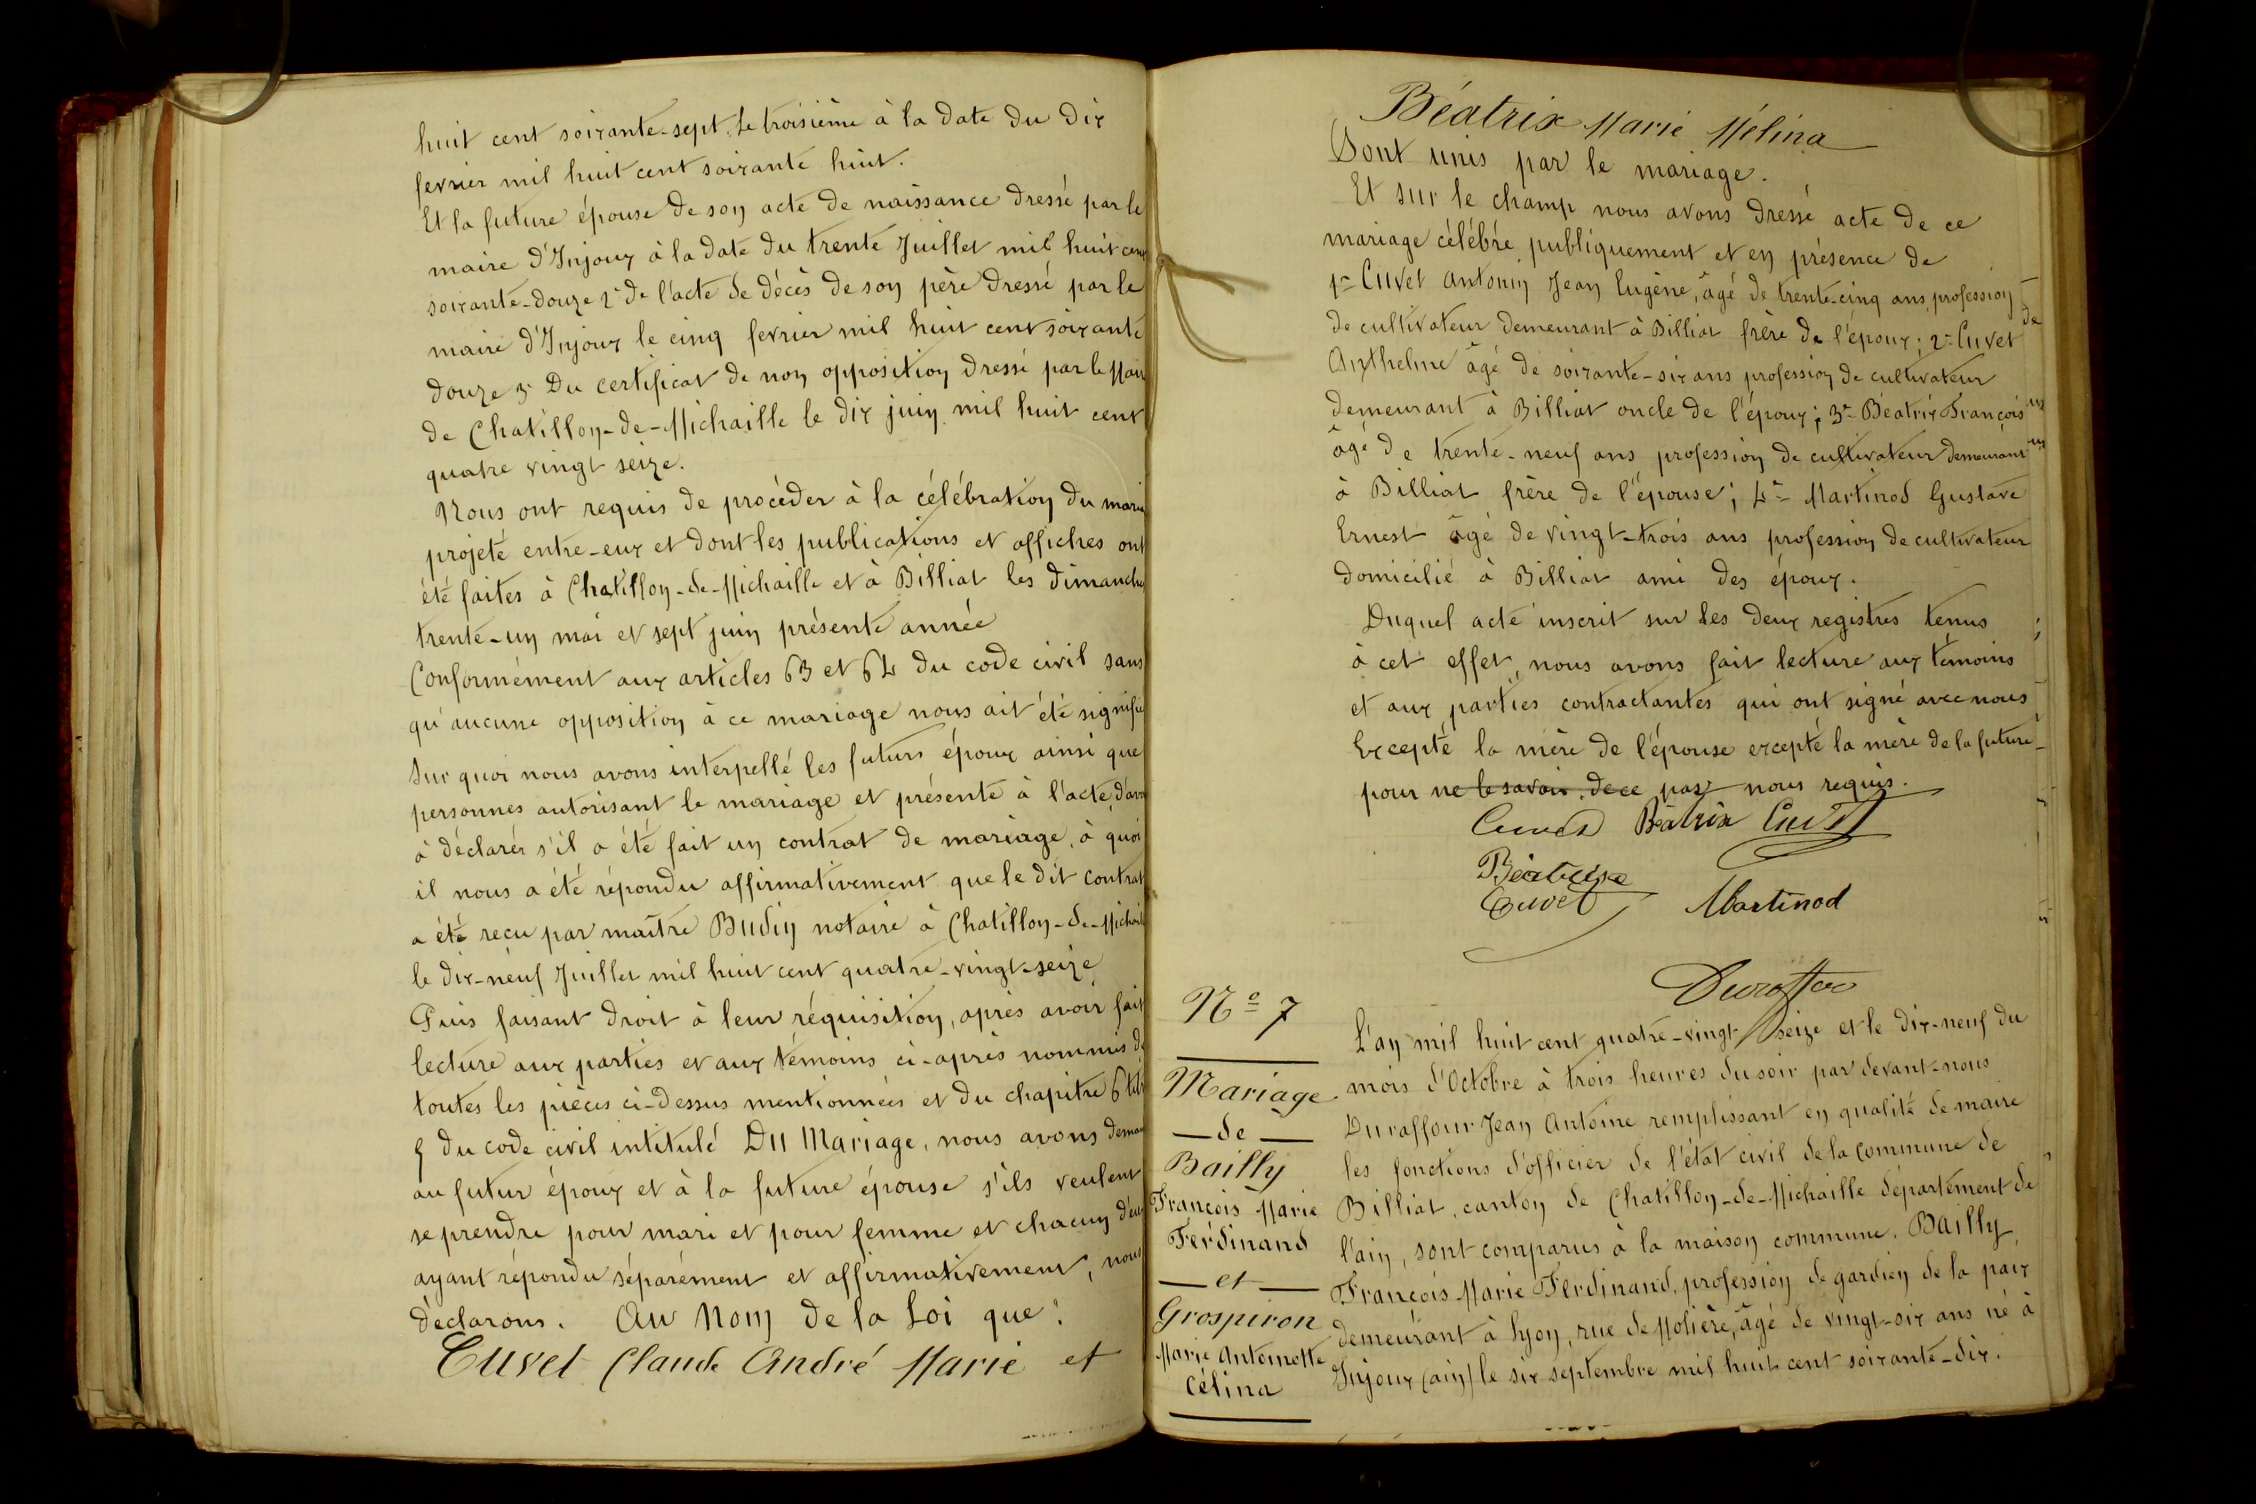 huit cent soixante-sept, Le troisième à la date du dix
fevrier mil huit cent soixante huit.
Et la future épouse de son acte de naissance dressé par le
maire d'Injoux à la date du trente Juillet mil huit cent
soixante-douze 2° de l'acte de décès de son père dressé par le
maire d'Injoux le cinq fevrier mil huit cent soixante
douze 3° Du certificat de non opposition dressé par le Mair
de Chatillon-de-Michaille le dix juin mil huit cent
quatre vingt seize.
Nous ont requis de procéder à la célébration du maria
projeté entre-eux et dont les publications et affiches ont
été faites à Chatillon-de-Michaille et à Billiat les dimanches
trente-un mai et sept juin présente année
Conformément aux articles 63 et 64 du code civil sans
qu'aucune opposition à ce mariage nous ait été signifié
Sur quoi nous avons interpellé les futurs époux ainsi que
personnes autorisant le mariage et présente à l'acte, d'avoir
à déclarer s'il a été fait un contrat de mariage, à quoi
il nous a été répondu affirmativement que le dit contrat
a été reçu par maître Budin notaire à Chatillon-de-Michaille
le dix-neuf Juillet mil huit cent quatre-vingt-seize
Puis faisant droit à leur réquisition, après avoir fait
lecture aux parties et aux témoins ci-après nommés de
toutes les pièces ci-dessus mentionnées et du chapitre 6 titre
5 du code civil intitulé Du Mariage, nous avons deman
au futur époux et à la future épouse s'ils veulent
se prendre pour mari et pour femme et chacun d'eux
ayant répondu séparément et affirmativement, nous
déclarons. Au Nom de la Loi que:
Cuvet Claude André Marie et
Béatrix Marie Mélina
Sont unis par le mariage.
Et sur le champ nous avons dressé acte de ce
mariage célébré publiquement et en présence de
1° Cuvet Antonin Jean Eugène, âgé de trente-cinq ans, profession
de cultivateur demeurant à Billiat frère de l'époux; 2° Cuvet
Anthelme âgé de soixante-six ans profession de cultivateur
demeurant à Billiat oncle de l'époux; 3° Béatrix François
âgé de trente-neuf ans profession de cultivateur demeurant
à Billiat frère de l'épouse; 4° Martinod Gustave
Ernest âgé de vingt-trois ans profession de cultivateur
domicilié à Billiat ami des époux.
Duquel acte inscrit sur les deux registres tenus
à cet effet, nous avons fait lecture aux témoins
et aux parties contractantes qui ont signé avec nous
Excepté la mère de l'épouse excepté la mère de la future
pour ne le savoir. de ce par nous requis.
Cuvet Béatrix Cuvet
Béatrix
Cuvet Martinod
Duraffour
N° 7
Mariage
de
Bailly
François Marie
Ferdinand
et
Grospiron
Marie Antoinette
Célina
L'an mil huit cent quatre-vingt seize et le dix-neuf du
mois d'Octobre à trois heures du soir par devant-nous
Duraffour Jean Antoine remplissant en qualité de maire
les fonctions d'officier de l'état civil de la commune de
Billiat, canton de Chatillon-de-Michaille département de
l'ain, sont comparus à la maison commune. Bailly
François Marie Ferdinand, profession de gardien de la paix
demeurant à Lyon, rue de Molière, âgé de vingt-six ans né à
Injoux (ain) le six septembre mil huit cent soixante-dix.